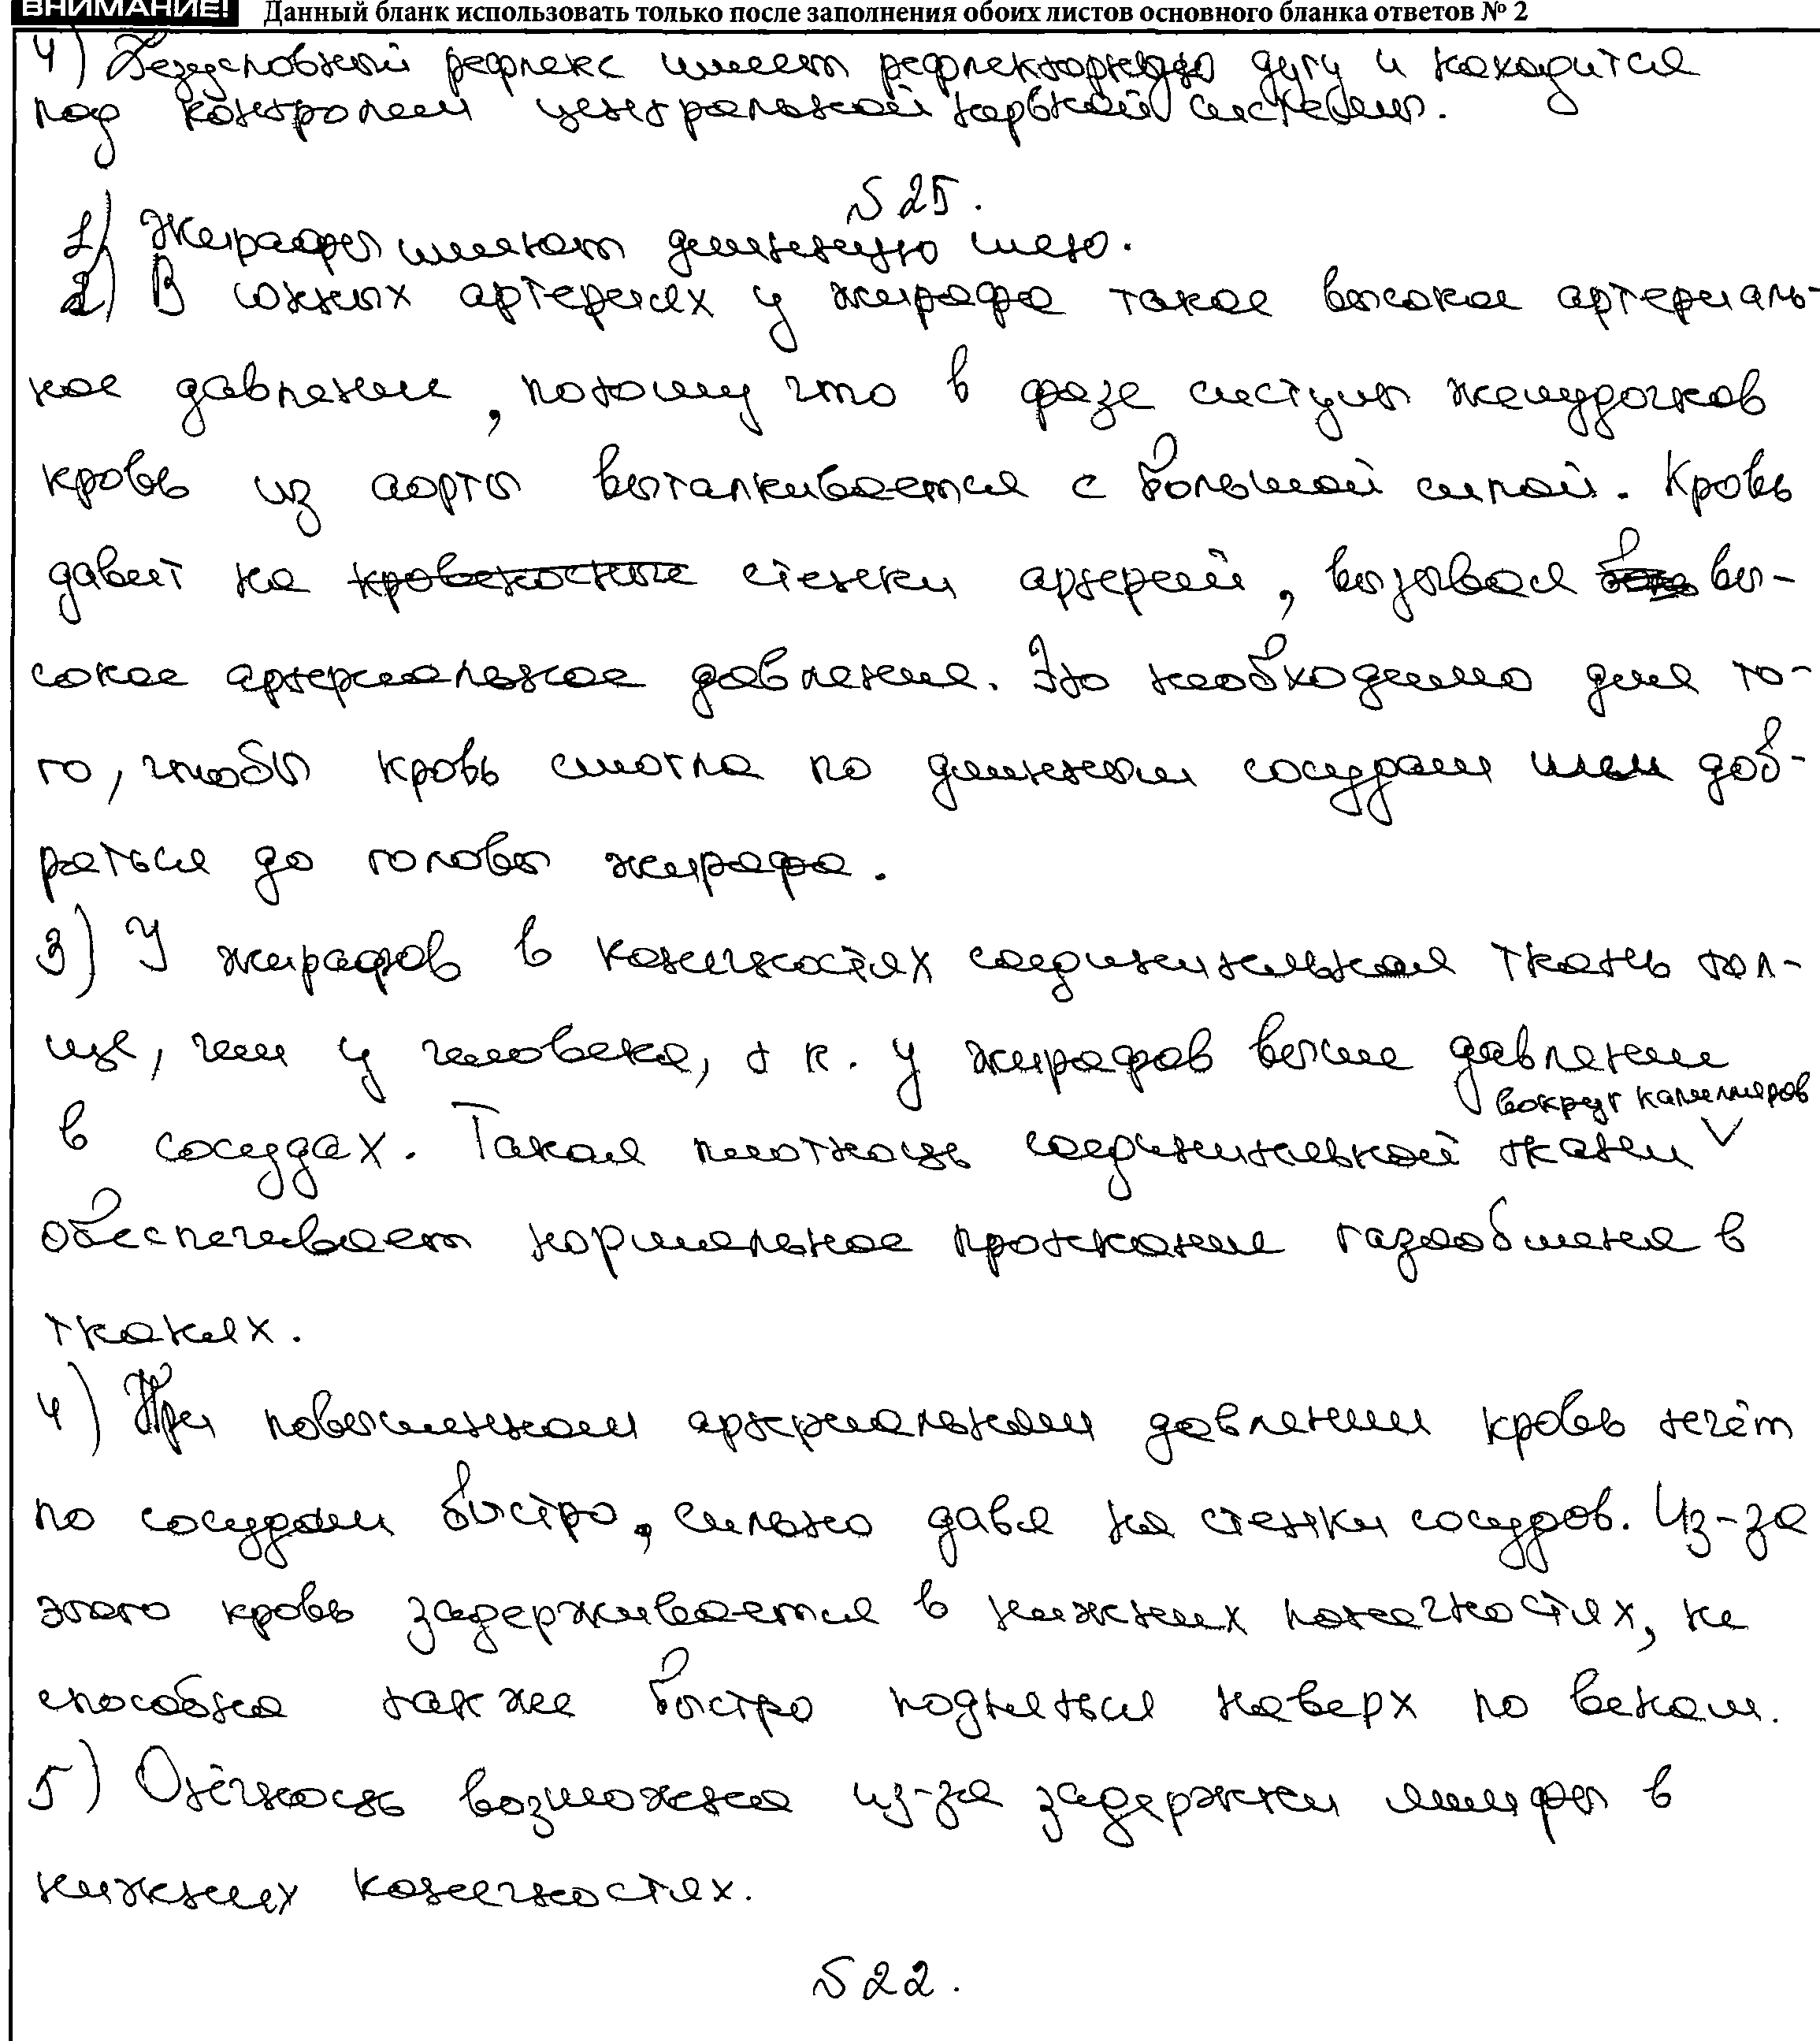 ВНИМАНИЕ! Данный бланк использовать только после заполнения обоих листов основного бланка ответов № 2
4) Безусловный рефлекс имеет рефлекторную дугу и находится
под контролем центральной нервной системы.
№ 25.
1) Жирафы имеют длинную шею.
2) В сонных артериях у жирафа такое высокое артериаль-
ное давление, потому что в фазе систулы желудочков
кровь из аорты выталкивается с большой силой. Кровь
давит на кровеносные стенки артерий, вызывая вы-
сокое артериальное давление. Это необходимо для то-
го, чтобы кровь смогла по длинным сосудам шеи доб-
раться до головы жирафа.
3) У жирафов в конечностях соединительная ткань тол-
ще, чем у человека, т к. у жирафов выше давление
вокруг капилляров
в сосудах. Такая плотность соединительной ткани ∨
обеспечивает нормальное протекание газообмена в
тканях.
4) При повышенном артериальном давлении кровь течёт
по сосудам быстро, сильно давя на стенки сосудов. Из-за
этого кровь задерживается в нижних конечностях, не
способна так же быстро подняться наверх по венам.
5) Отёчность возможна из-за задержки лимфы в
нижних конечностях.
№ 22.